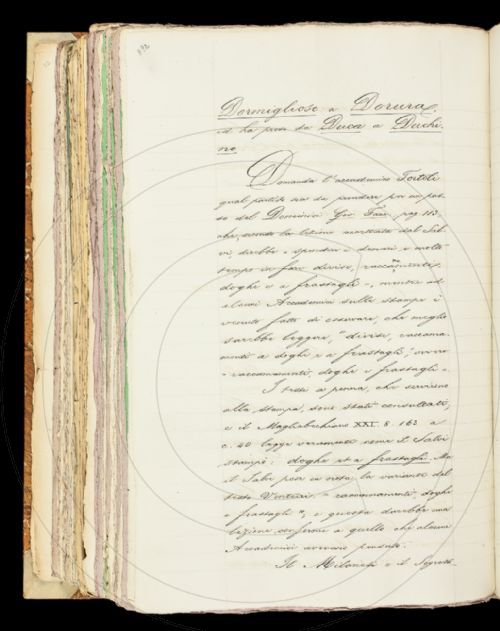 Dormiglioso a Dorura,
e ha pure da Duca a Duchi-
no
Domanda l'accademico Tortoli
qual partito sia da prendere per un pas-
so del Dominici Gov. Fam. pag. 113,
che, secondo la lezione accettata dal Sal-
vi, direbbe spendere e danari, e molto
tempo in fare divise, raccamenti,
doghe e a frastagli", mentre ad
alcuni Accademici sulle stampe è
venuto fatto di osservare, che meglio
sarebbe leggere, "divise, raccama-
menti a doghe e a frastagli", ovvero
raccamamenti, doghe e frastagli".
I testi a penna, che servirono
alla stampa, sono stati consultati;
e il Magliabechiano XXI. 8. 163 a
c. 40 legge veramente come il Salvi
stampò: doghe et a frastagli. Ma
il Salvi pose in nota la variante del
testo Venturi = raccamamenti, doghe
e frastagli", e questa sarebbe una
lezione conforme a quello che alcuni
Accademici avevano pensato.
Il Milanesi e il Segret-